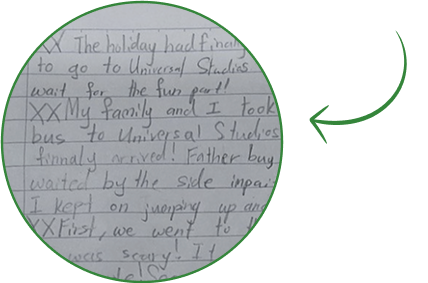 XX The holiday had final
to go to Universal Studios
wait for the fun part!
XX My family and I took
bus to Universal Studios
finnaly arrived! Father buy
waited by the side inpai
I kept on jumping up and
XX First, we went to t
was scary! It